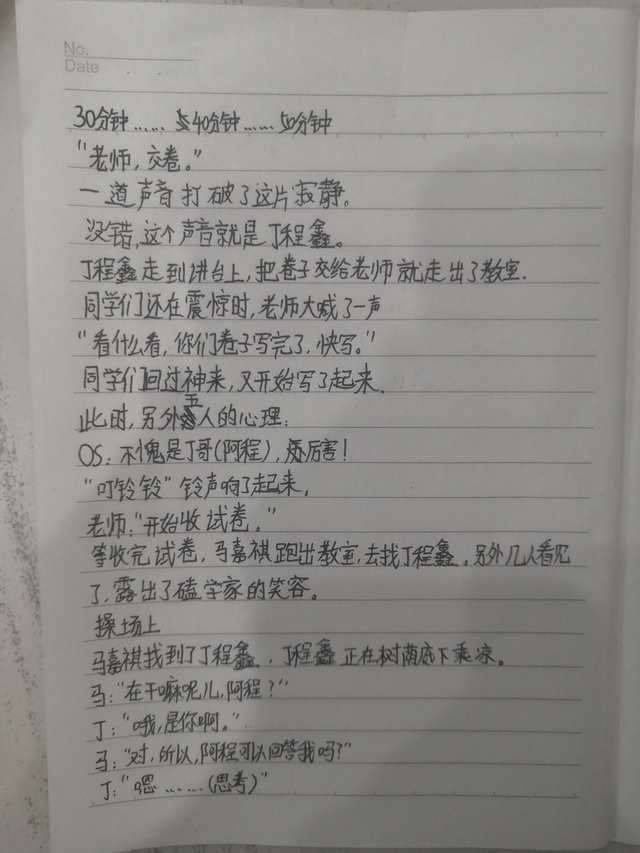 No.
Date
30分钟……40分钟……50分钟
“老师，交卷。”
一道声音打破了这片寂静。
没错，这个声音就是丁程鑫。
丁程鑫走到讲台上，把卷子交给老师就走出了教室.
同学们还在震惊时，老师大喊了一声
“看什么看，你们卷子写完了，快写。”
同学们回过神来，又开始写了起来.
此时，另外五人的心理：
OS：不愧是丁哥(阿程)，厉害！
“叮铃铃”铃声响了起来，
老师：“开始收试卷。”
等收完试卷，马嘉祺跑出教室，去找丁程鑫。另外几人看见
了，露出了磕学家的笑容。
操场上
马嘉祺找到了丁程鑫，丁程鑫正在树荫底下乘凉。
马：“在干嘛呢儿，阿程？”
丁：“哦，是你啊。”
马：“对，所以，阿程可以回答我吗？”
丁：“嗯……(思考)”